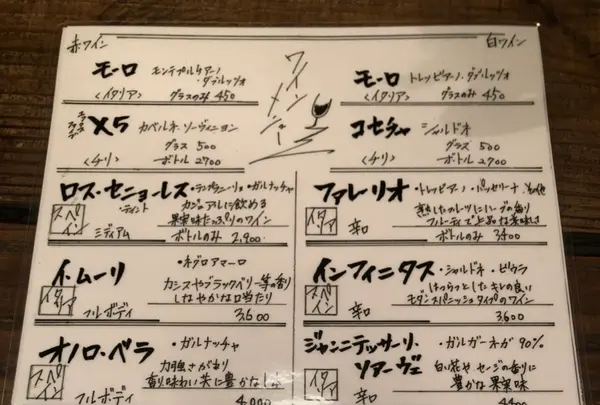 赤ワイン
ワインメニュー
白ワイン
モーロ モンテプルチアーノ・ダブルッツォ
〈イタリア〉 グラスのみ 450
X5 カベルネ・ソーヴィニヨン
グラス 500
〈チリ〉 ボトル 2700
ロス・セニョーレス ・テンプラニーリョ・ガルナッチャ
ティント カジュアルに飲める
スペイン 果実味たっぷりのワイン
ミディアム ボトルのみ 2,900
イ・ムーリ ・ネグロアマーロ
イタリア カシスやブラックベリー等の香り
しなやかな口当たり
フルボディ 3,600
オノロ・ベラ ・ガルナッチャ
スペイン 力強さがあり
香り味わい共に豊かな
フルボディ 4,000
モーロ トレッビアーノ・ダブルッツォ
〈イタリア〉 グラスのみ 450
コセチャ シャルドネ
グラス 500
〈チリ〉 ボトル 2700
ファレーリオ ・トレッビアーノ・パッセリーナ その他
イタリア 熟したフルーツにハーブの香り
フルーティで上品な美味しさ
辛口 ボトルのみ 3400
インフィニタス ・シャルドネ・ビウラ
スペイン はつらつとしたキレの良い
モダンスパニッシュタイプのワイン
辛口 3,600
ジャンニテッサーリ・ソアーヴェ ・ガルガーネガ 90%
イタリア 白い花やセージの香りに
豊かな果実味
辛口 4400